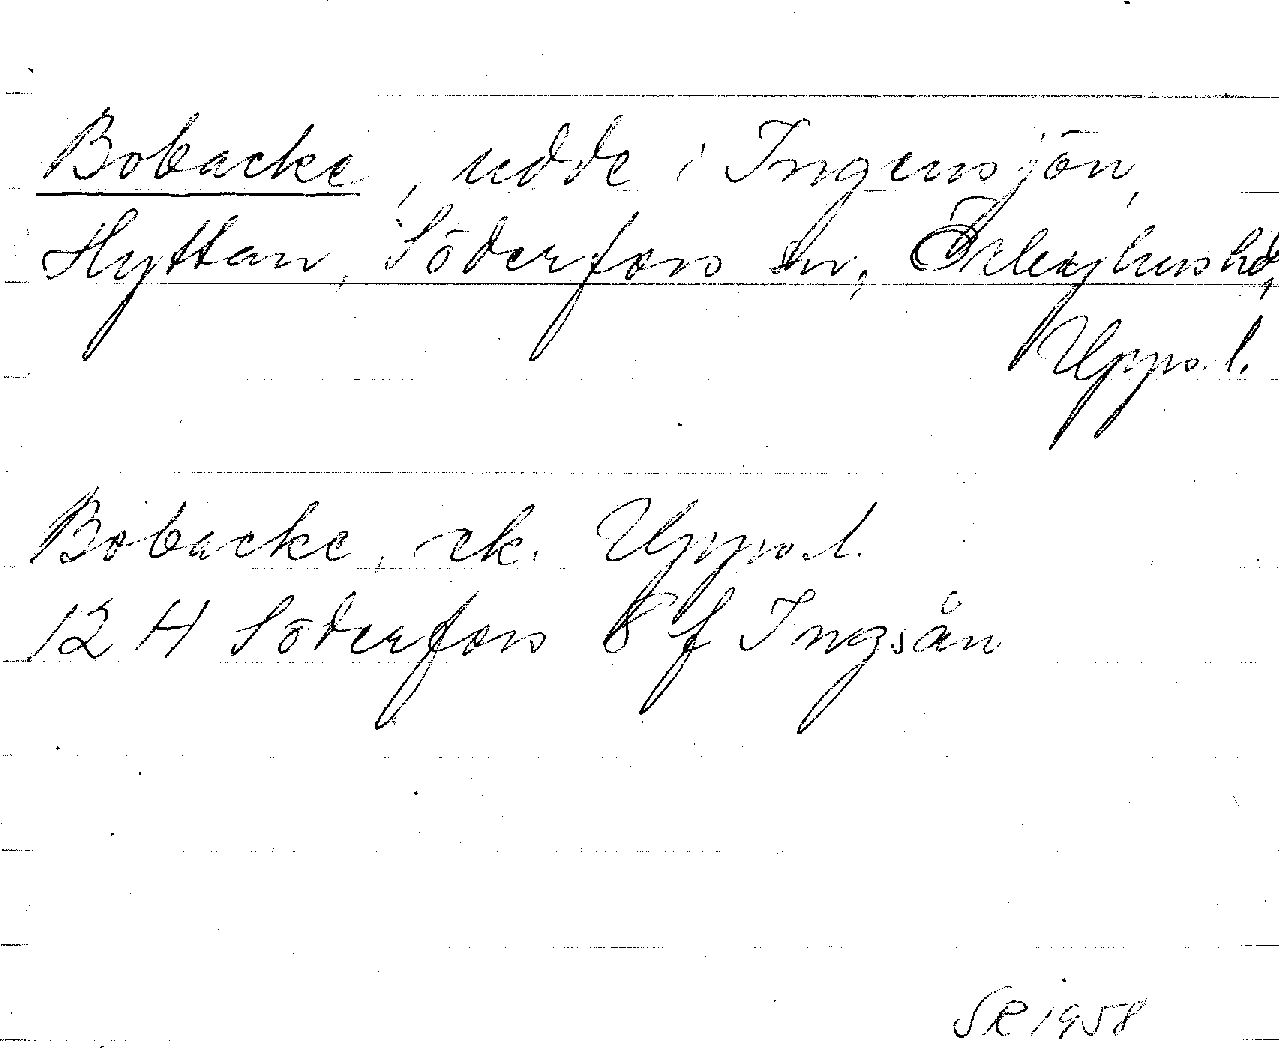 Bobacke, udde i Ingensjön,
Hyttan, Söderfors sn, Örbyhus hd,
Uppl.
Bobacke, ek. Uppl.
12 H Söderfors 8 f Ingsån
SR 1958